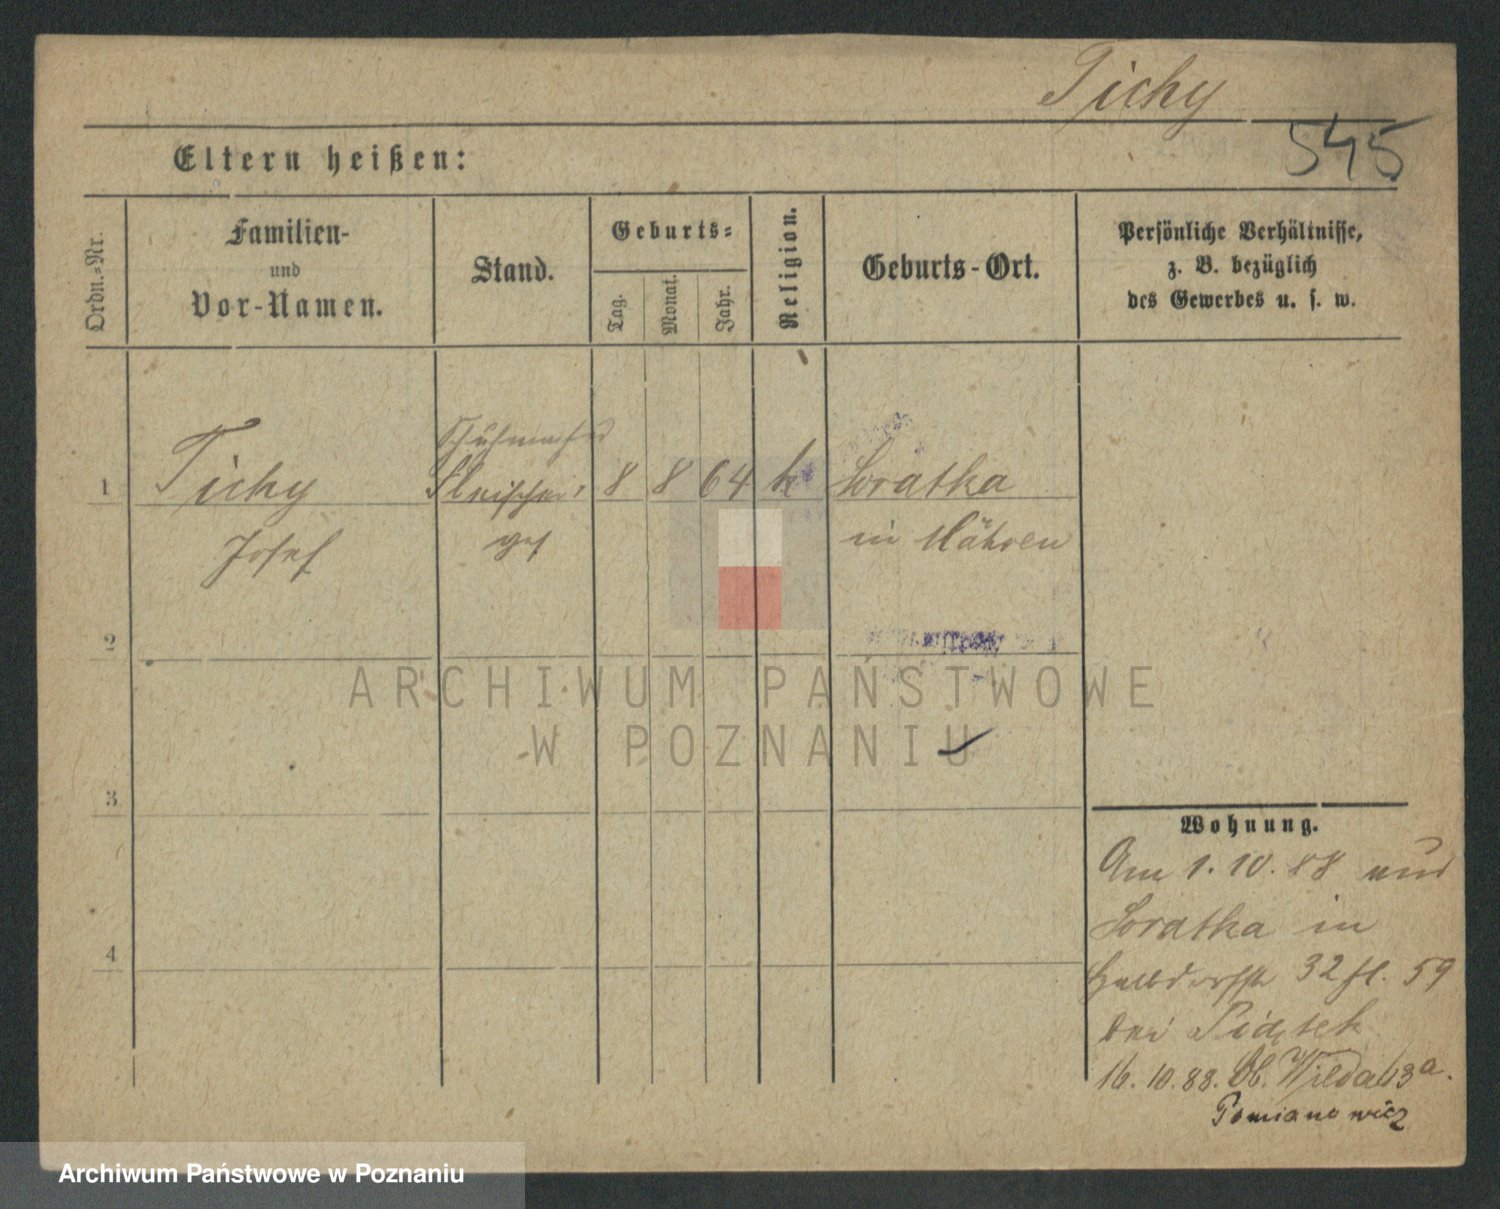 Tichy
545
Eltern heißen:
Ordn.-Nr.
Familien-
und
Vor-Namen.
Stand.
Geburts-
Tag.
Monat.
Jahr.
Religion.
Geburts-Ort.
Persönliche Verhältnisse,
z. B. bezüglich
des Gewerbes u. s. w.
Schuhmacher
1 Tichy Fleischer 8 8 64 k Loratka
Josef ges in Mähren
2
3
4
Wohnung.
Am 1. 10. 88 aus
Loratka in
Halbdorfstr 32 fl. 59
bei
16. 10. 88. Ob. Wilda 13a.
Pomianowicz
ARCHIWUM PAŃSTWOWE
W POZNANIU
Archiwum Państwowe w Poznaniu